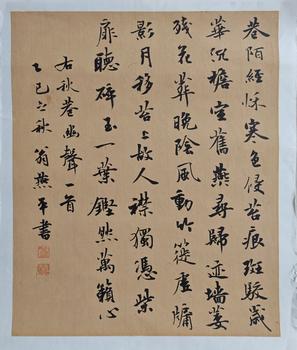 巷陌經秋寒色侵苔痕斑駁歲
華沉檐空舊燕尋歸迹墻萎
殘花葬晚陰風動竹篩虛牖
影月移苔上故人襟獨憑柴
扉聽碎玉一葉鏗然萬籟心
右秋巷幽聲一首
乙巳之秋翁燕平書